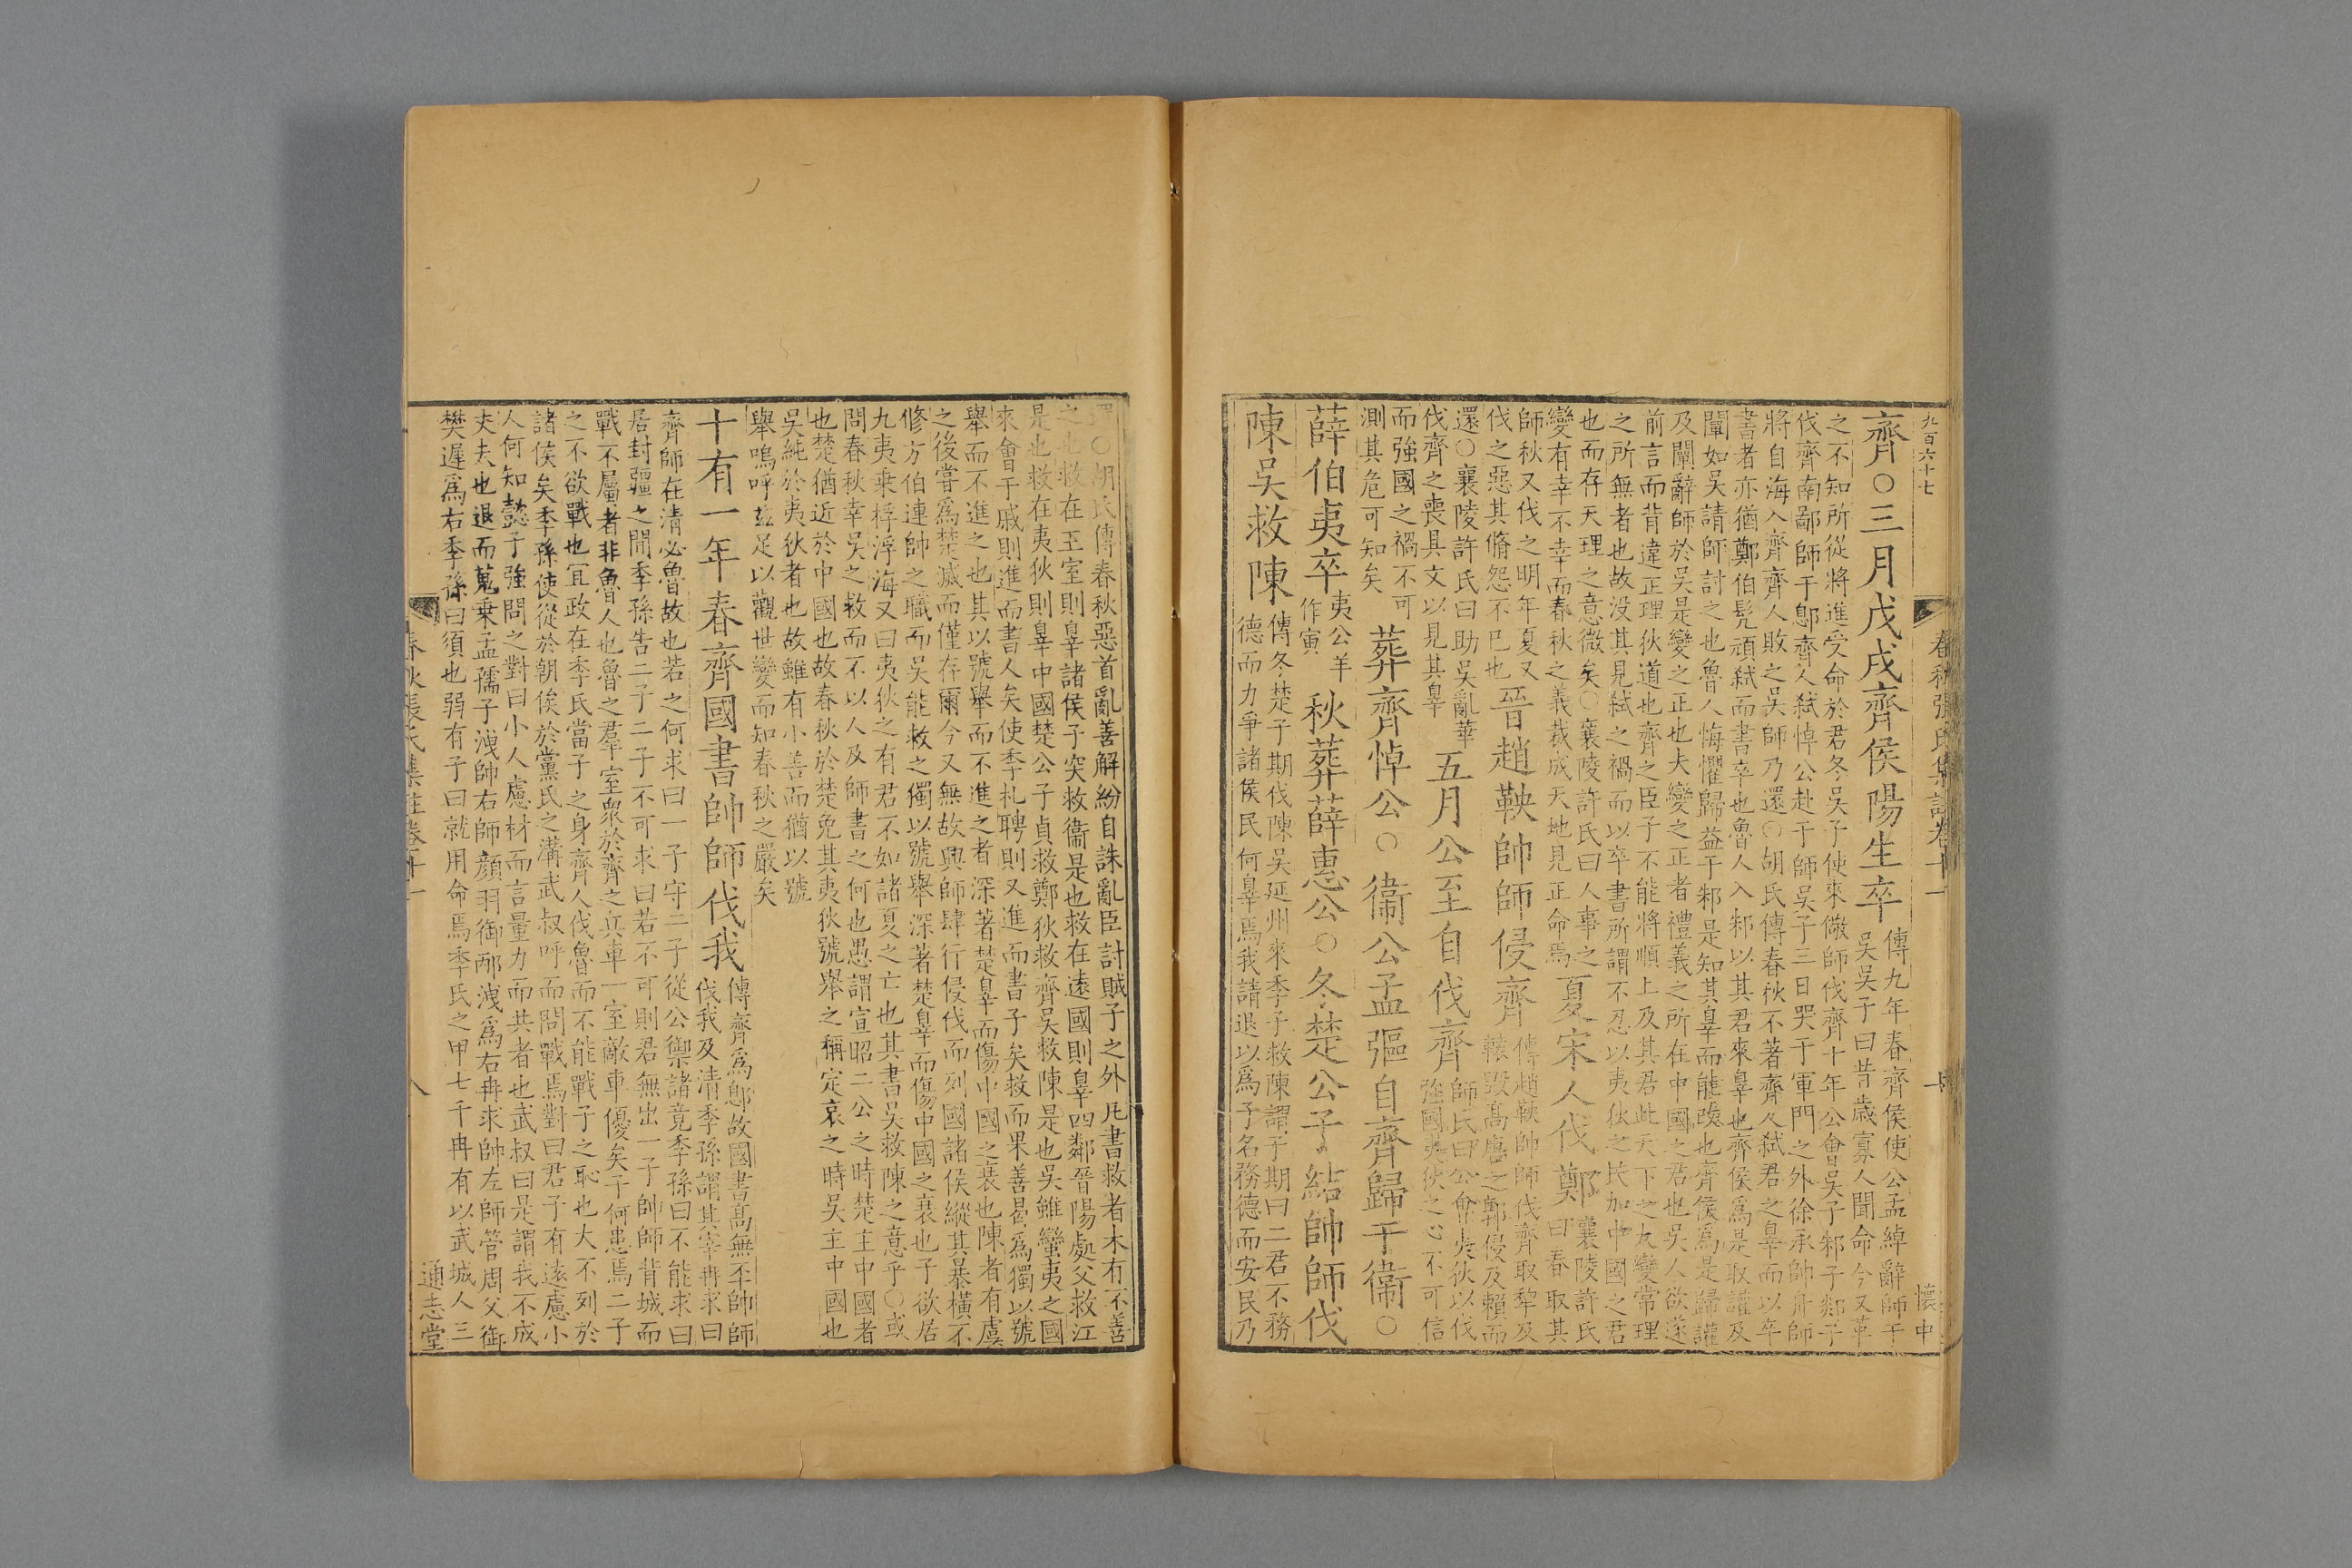 九百六十七
春秋張氏集註卷十一
十
懷中
齊○三月戊戌齊侯陽生卒
傳九年春齊侯使公孟綽辭師于
吳吳子曰昔歲寡人聞命今又革
之不知所從將進受命於君冬吳子使來儆師伐齊十年公會吳子邾子郯子
伐齊南鄙師于鄎齊人弑悼公赴于師吳子三日哭于軍門之外徐承帥舟師
將自海入齊齊人敗之吳師乃還○胡氏傳春秋不著齊人弑君之辠而以卒
書者亦猶鄭伯髠頑弑而書卒也魯人入邾以其君來辠也齊侯爲是取讙及
闡如吳請師討之也魯人悔懼歸益于邾是知其辠而能改也齊侯爲是歸讙
及闡辭師於吳是變之正也夫變之正者禮義之所在中國之君也吳人欲遂
前言而背違正理狄道也齊之臣子不能將順上及其君此天下之大變常理
之所無者也故没其見弑之禍而以卒書所謂不忍以夷狄之民加中國之君
也而存天理之意微矣○襄陵許氏曰人事之
變有幸不幸而春秋之義裁成天地見正命焉
夏宋人伐鄭
襄陵許氏
曰春取其
師秋又伐之明年夏又
伐之惡其脩怨不已也
晉趙鞅帥師侵齊
傳趙鞅帥師伐齊取犂及
轅毀高唐之郭侵及賴而
還○襄陵許氏曰助吳亂華
伐齊之喪具文以見其辠
五月公至自伐齊
師氏曰公會夷狄以伐
強國夷狄之心不可信
而強國之禍不可
測其危可知矣
葬齊悼公○衞公孟彄自齊歸于衞○
薛伯夷卒
夷公羊
作寅
秋葬薛惠公○冬楚公子結帥師伐
陳吳救陳
傳冬楚子期伐陳吳延州來季子救陳謂子期曰二君不務
德而力爭諸侯民何辠焉我請退以爲子名務德而安民乃
還○胡氏傳春秋惡首亂善解紛自誅亂臣討賊子之外凡書救者未有不善
之也救在王室則辠諸侯子突救衞是也救在遠國則辠四鄰晉陽處父救江
是也救在夷狄則辠中國楚公子貞救鄭狄救齊吳救陳是也吳雖蠻夷之國
來會于戚則進而書人矣使季札聘則又進而書子矣救而果善曷爲獨以號
舉而不進之也其以號舉而不進之者深著楚辠而傷中國之衰也陳者有虞
之後嘗爲楚滅而僅存爾今又無故興師肆行侵伐而列國諸侯縱其暴橫不
修方伯連帥之職而吳能救之獨以號舉深著楚辠而傷中國之衰也子欲居
九夷乘桴浮海又曰夷狄之有君不如諸夏之亡也其書吳救陳之意乎○或
問春秋幸吳之救而不以人及師書之何也愚謂宣昭二公之時楚主中國者
也楚猶近於中國也故春秋於楚免其夷狄號舉之稱定哀之時吳主中國也
吳純於夷狄者也故雖有小善而猶以號
舉嗚呼茲足以觀世變而知春秋之嚴矣
十有一年春齊國書帥師伐我
傳齊爲鄎故國書高無㔻帥師
伐我及清季孫謂其宰冉求曰
齊師在清必魯故也若之何求曰一子守二子從公禦諸竟季孫曰不能求曰
居封疆之間季孫告二子二子不可求曰若不可則君無出一子帥師背城而
戰不屬者非魯人也魯之羣室衆於齊之兵車一室敵車優矣子何患焉二子
之不欲戰也宜政在季氏當子之身齊人伐魯而不能戰子之恥也大不列於
諸侯矣季孫使從於朝俟於黨氏之溝武叔呼而問戰焉對曰君子有遠慮小
人何知懿子強問之對曰小人慮材而言量力而共者也武叔曰是謂我不成
丈夫也退而蒐乗孟孺子洩帥右師顔羽御邴洩爲右冉求帥左師管周父御
樊遲爲右季孫曰須也弱有子曰就用命焉季氏之甲七千冉有以武城人三
春秋張氏集註卷十一
八
通志堂